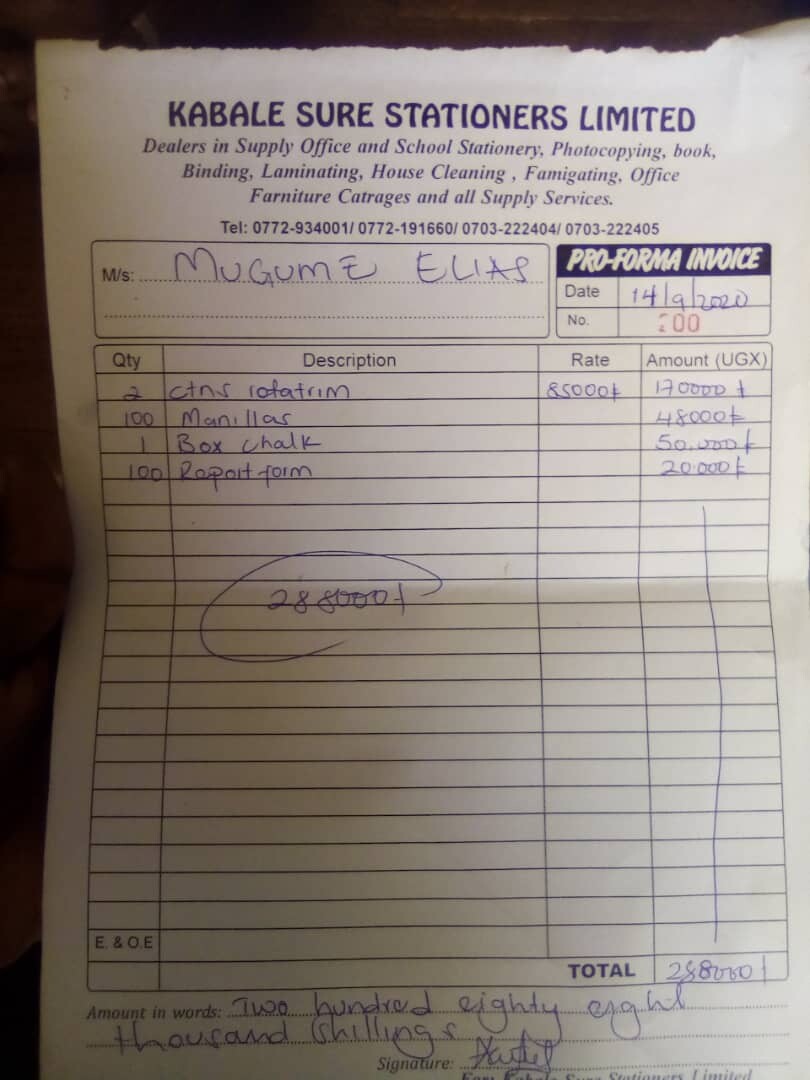 KABALE SURE STATIONERS LIMITED
Dealers in Supply Office and School Stationery, Photocopying, book,
Binding, Laminating, House Cleaning , Famigating, Office
Farniture Catrages and all Supply Services.
Tel: 0772-934001/ 0772-191660/ 0703-222404/ 0703-222405
M/s: MUGUME ELIAS
PRO-FORMA INVOICE
Date 14/9/2020
No. 200
Qty Description Rate Amount (UGX)
2 ctns rotatrim 85000/= 170000/=
100 Manillas 48000/=
1 Box chalk 50.000/=
100 Report form 20.000/=
288000/=
E. & O.E
TOTAL 288000/=
Amount in words: Two hundred eighty eight
thousand shillings
Signature:
For: Kabale Sure Stationers Limited